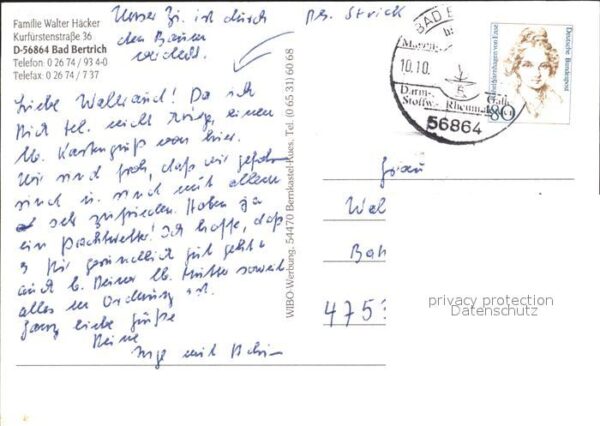 Familie Walter Häcker
Kurfürstenstraße 36
D-56864 Bad Bertrich
Telefon: 0 26 74 / 93 4-0
Telefax: 0 26 74 / 7 37
Unser Zi. ist durch
den Baum
verdeckt.
Liebe Waltraud! Da ich
Dich tel. nicht kriege, einen
lb. Kartengruß von hier.
Wir sind froh, daß wir gefahren
sind u. sind mit allem
sehr zufrieden. Haben ja
ein Prachtwetter! Ich hoffe, daß
es Dir gesundlich gut geht u.
auch b. Deiner lb. Mutter soweit
alles in Ordnung ist.
Ganz liebe Grüße
Deine
Inge mit
WIBO-Werbung, 54470 Bernkastel-Kues, Tel. (0 65 31) 60 68
BAD
10.10.
Darm-,
Stoffw.- Rheuma
56864
Deutsche Bundespost
80
Frau
Wal
Bah
475
privacy protection
Datenschutz